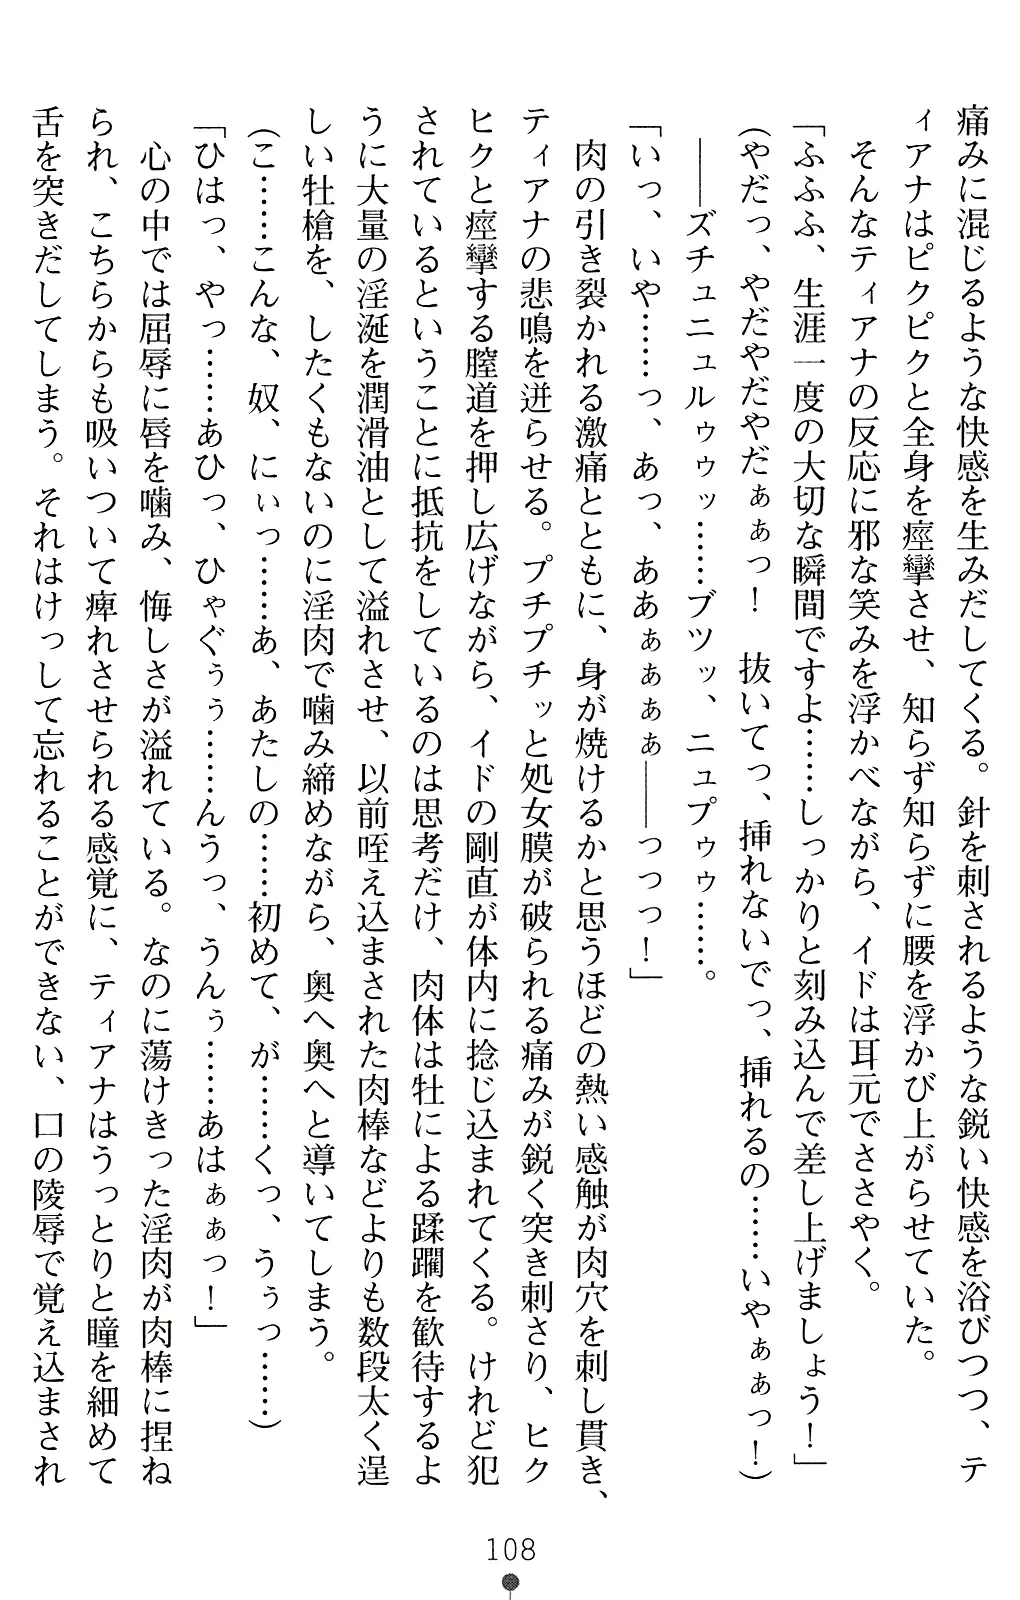 痛みに混じるような快感を生みだしてくる。針を刺されるような鋭い快感を浴びつつ、テ
ィアナはピクピクと全身を痙攣させ、知らず知らずに腰を浮かび上がらせていた。
そんなティアナの反応に邪な笑みを浮かべながら、イドは耳元でささやく。
「ふふふ、生涯一度の大切な瞬間ですよ……しっかりと刻み込んで差し上げましょう！」
(やだっ、やだやだやだぁぁっ！　抜いてっ、挿れないでっ、挿れるの……いやぁぁっ！)
――ズチュニュルゥゥッ……ブツッ、ニュプゥゥ……。
「いっ、いや……っ、あっ、ああぁぁぁぁ――っっっ！」
肉の引き裂かれる激痛とともに、身が焼けるかと思うほどの熱い感触が肉穴を刺し貫き、
ティアナの悲鳴を迸らせる。プチプチッと処女膜が破られる痛みが鋭く突き刺さり、ヒク
ヒクと痙攣する膣道を押し広げながら、イドの剛直が体内に捻じ込まれてくる。けれど犯
されているということに抵抗をしているのは思考だけ、肉体は牡による蹂躙を歓待するよ
うに大量の淫涎を潤滑油として溢れさせ、以前咥え込まされた肉棒などよりも数段太く逞
しい牡槍を、したくもないのに淫肉で噛み締めながら、奥へ奥へと導いてしまう。
(こ……こんな、奴、にぃっ……あ、あたしの……初めて、が……くっ、うぅっ……)
「ひはっ、やっ……あひっ、ひゃぐぅぅ……んうっ、うんぅ……あはぁぁっ！」
心の中では屈辱に唇を噛み、悔しさが溢れている。なのに蕩けきった淫肉が肉棒に捏ね
られ、こちらからも吸いついて痺れさせられる感覚に、ティアナはうっとりと瞳を細めて
舌を突きだしてしまう。それはけっして忘れることができない、口の陵辱で覚え込まされ
108